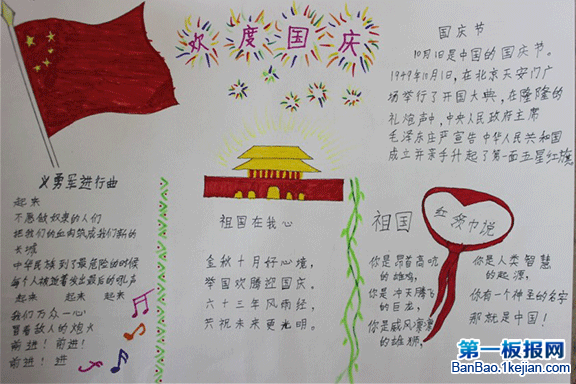 欢度国庆
国庆节
10月1日是中国的国庆节。
1949年10月1日,在北京天安门广
场举行了开国大典,在隆隆的
礼炮声中,中央人民政府主席
毛泽东庄严宣告中华人民共和国
成立并亲手升起了第一面五星红旗
义勇军进行曲
起来
不愿做奴隶的人们
把我们的血肉筑成我们新的
长城
中华民族到了最危险的时候
每个人被迫着发出最后的吼声
起来 起来 起来
我们万众一心
冒着敌人的炮火
前进!前进!
前进!进
祖国在我心
金秋十月好心境,
举国欢腾迎国庆。
六十三年风雨轻,
共祝未来更光明。
祖国
红领巾说
你是昂首高吭
的雄鸡,
你是冲天腾飞
的巨龙,
你是威风凛凛
的雄狮,
你是人类智慧
的起源,
你有一个神圣的名字
那就是中国!
第一板报网
BanBao.1kejian.com